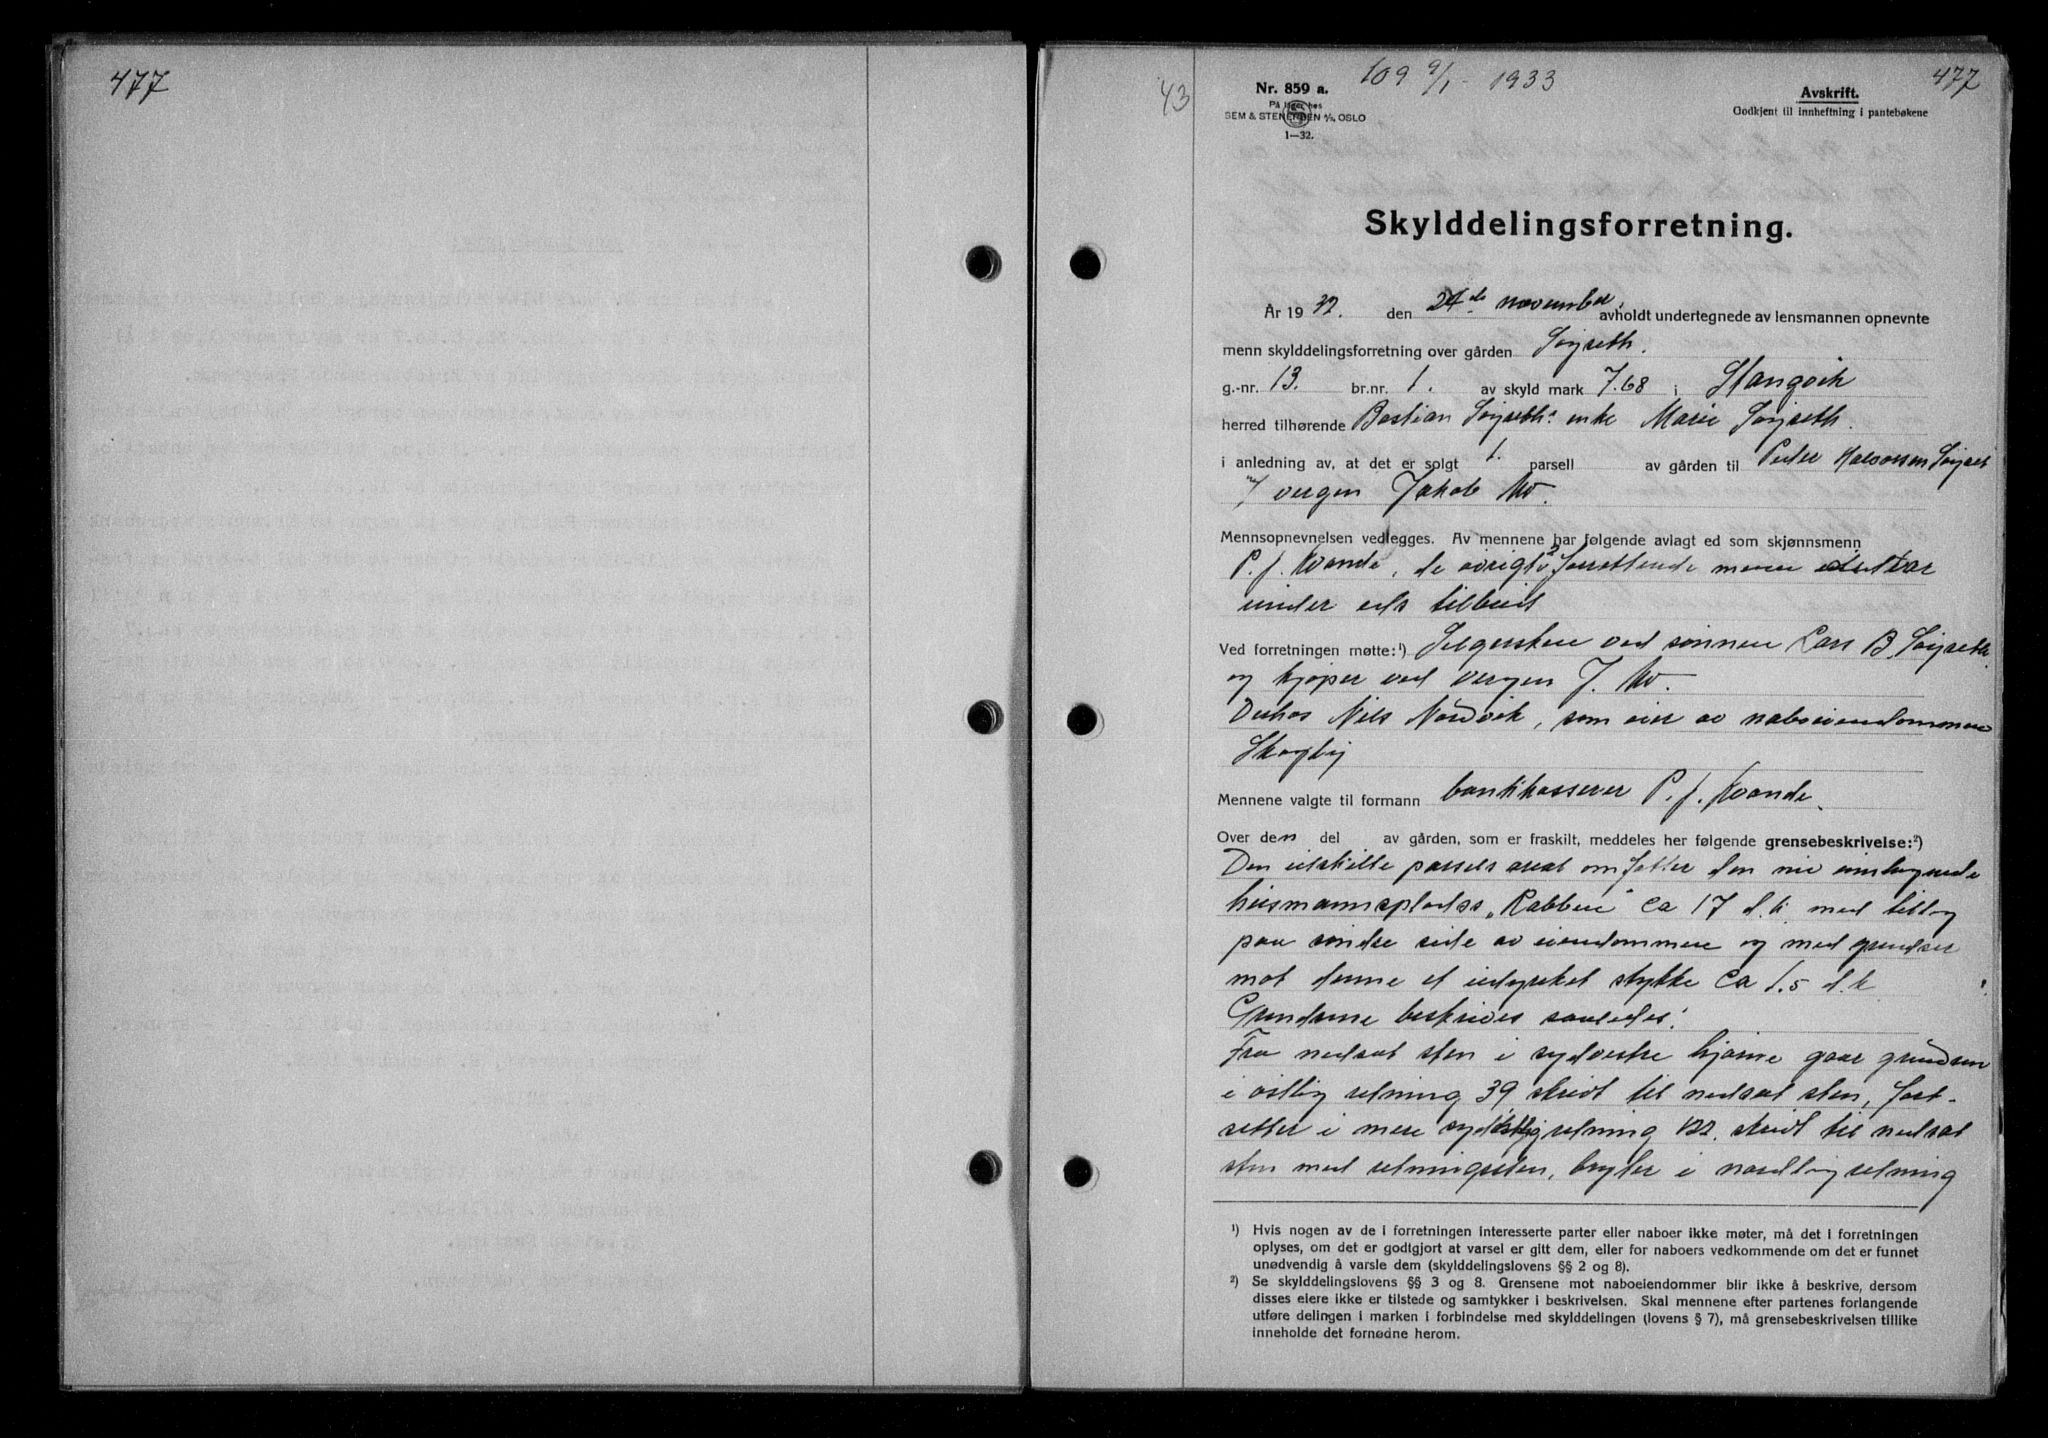 477
43
109 9/1 - 1933
477
Nr. 859 a.
På lager hos
SEM & STENERSEN A/S, OSLO
1—32.
Avskrift.
Godkjent til innheftning i pantebøkene
Skylddelingsforretning.
År 1932. den 24de november avholdt undertegnede av lensmannen opnevnte
menn skylddelingsforretning over gården Søyseth.
g.-nr. 13. br.nr. 1. av skyld mark 7.68 i Stangvik
herred tilhørende Bastian Søyseths enke Marie Søyseth.
i anledning av, at det er solgt 1. parsell av gården til Peder Halvorsen Søyset
v/ vergen Jakob Mo.
Mennsopnevnelsen vedlegges. Av mennene har følgende avlagt ed som skjønnsmenn
P. J. Kvande, de øvrige 2 forrettende menn
under eds tilbud
Ved forretningen møtte:¹) Selgersken ved sønnen Lars B. Søyseth
og kjøper ved vergen J. Mo.
Desuten Nils Nordvik, som eier av naboeiendommen
Skogly
Mennene valgte til formann bankkasserer P. J. Kvande.
Over den del av gården, som er fraskilt, meddeles her følgende grensebeskrivelse:²)
Den utskilte parsels areal omfatter den nu
husmannsplads „Rabben" ca 17 d.k. med tillegg
paa søndre side av eiendommen og med grendser
mot denne et udyrket stykke ca 1.5 d.k
Grendsene beskrives saaledes:
Fra nedsat sten i sydvestre hjørne gaar grendsen
i østlig retning 39 skridt til nedsat sten, fort-
setter i mere sydøstlig retning 122. skridt til nedsat
sten med retningssten, bryter i nordlig retning
¹) Hvis nogen av de i forretningen interesserte parter eller naboer ikke møter, må det i forretningen
oplyses, om det er godtgjort at varsel er gitt dem, eller for naboers vedkommende om det er funnet
unødvendig å varsle dem (skylddelingslovens §§ 2 og 8).
²) Se skylddelingslovens §§ 3 og 8. Grensene mot naboeiendommer blir ikke å beskrive, dersom
disses eiere ikke er tilstede og samtykker i beskrivelsen. Skal mennene efter partenes forlangende
utføre delingen i marken i forbindelse med skylddelingen (lovens § 7), må grensebeskrivelsen tillike
inneholde det fornødne herom.